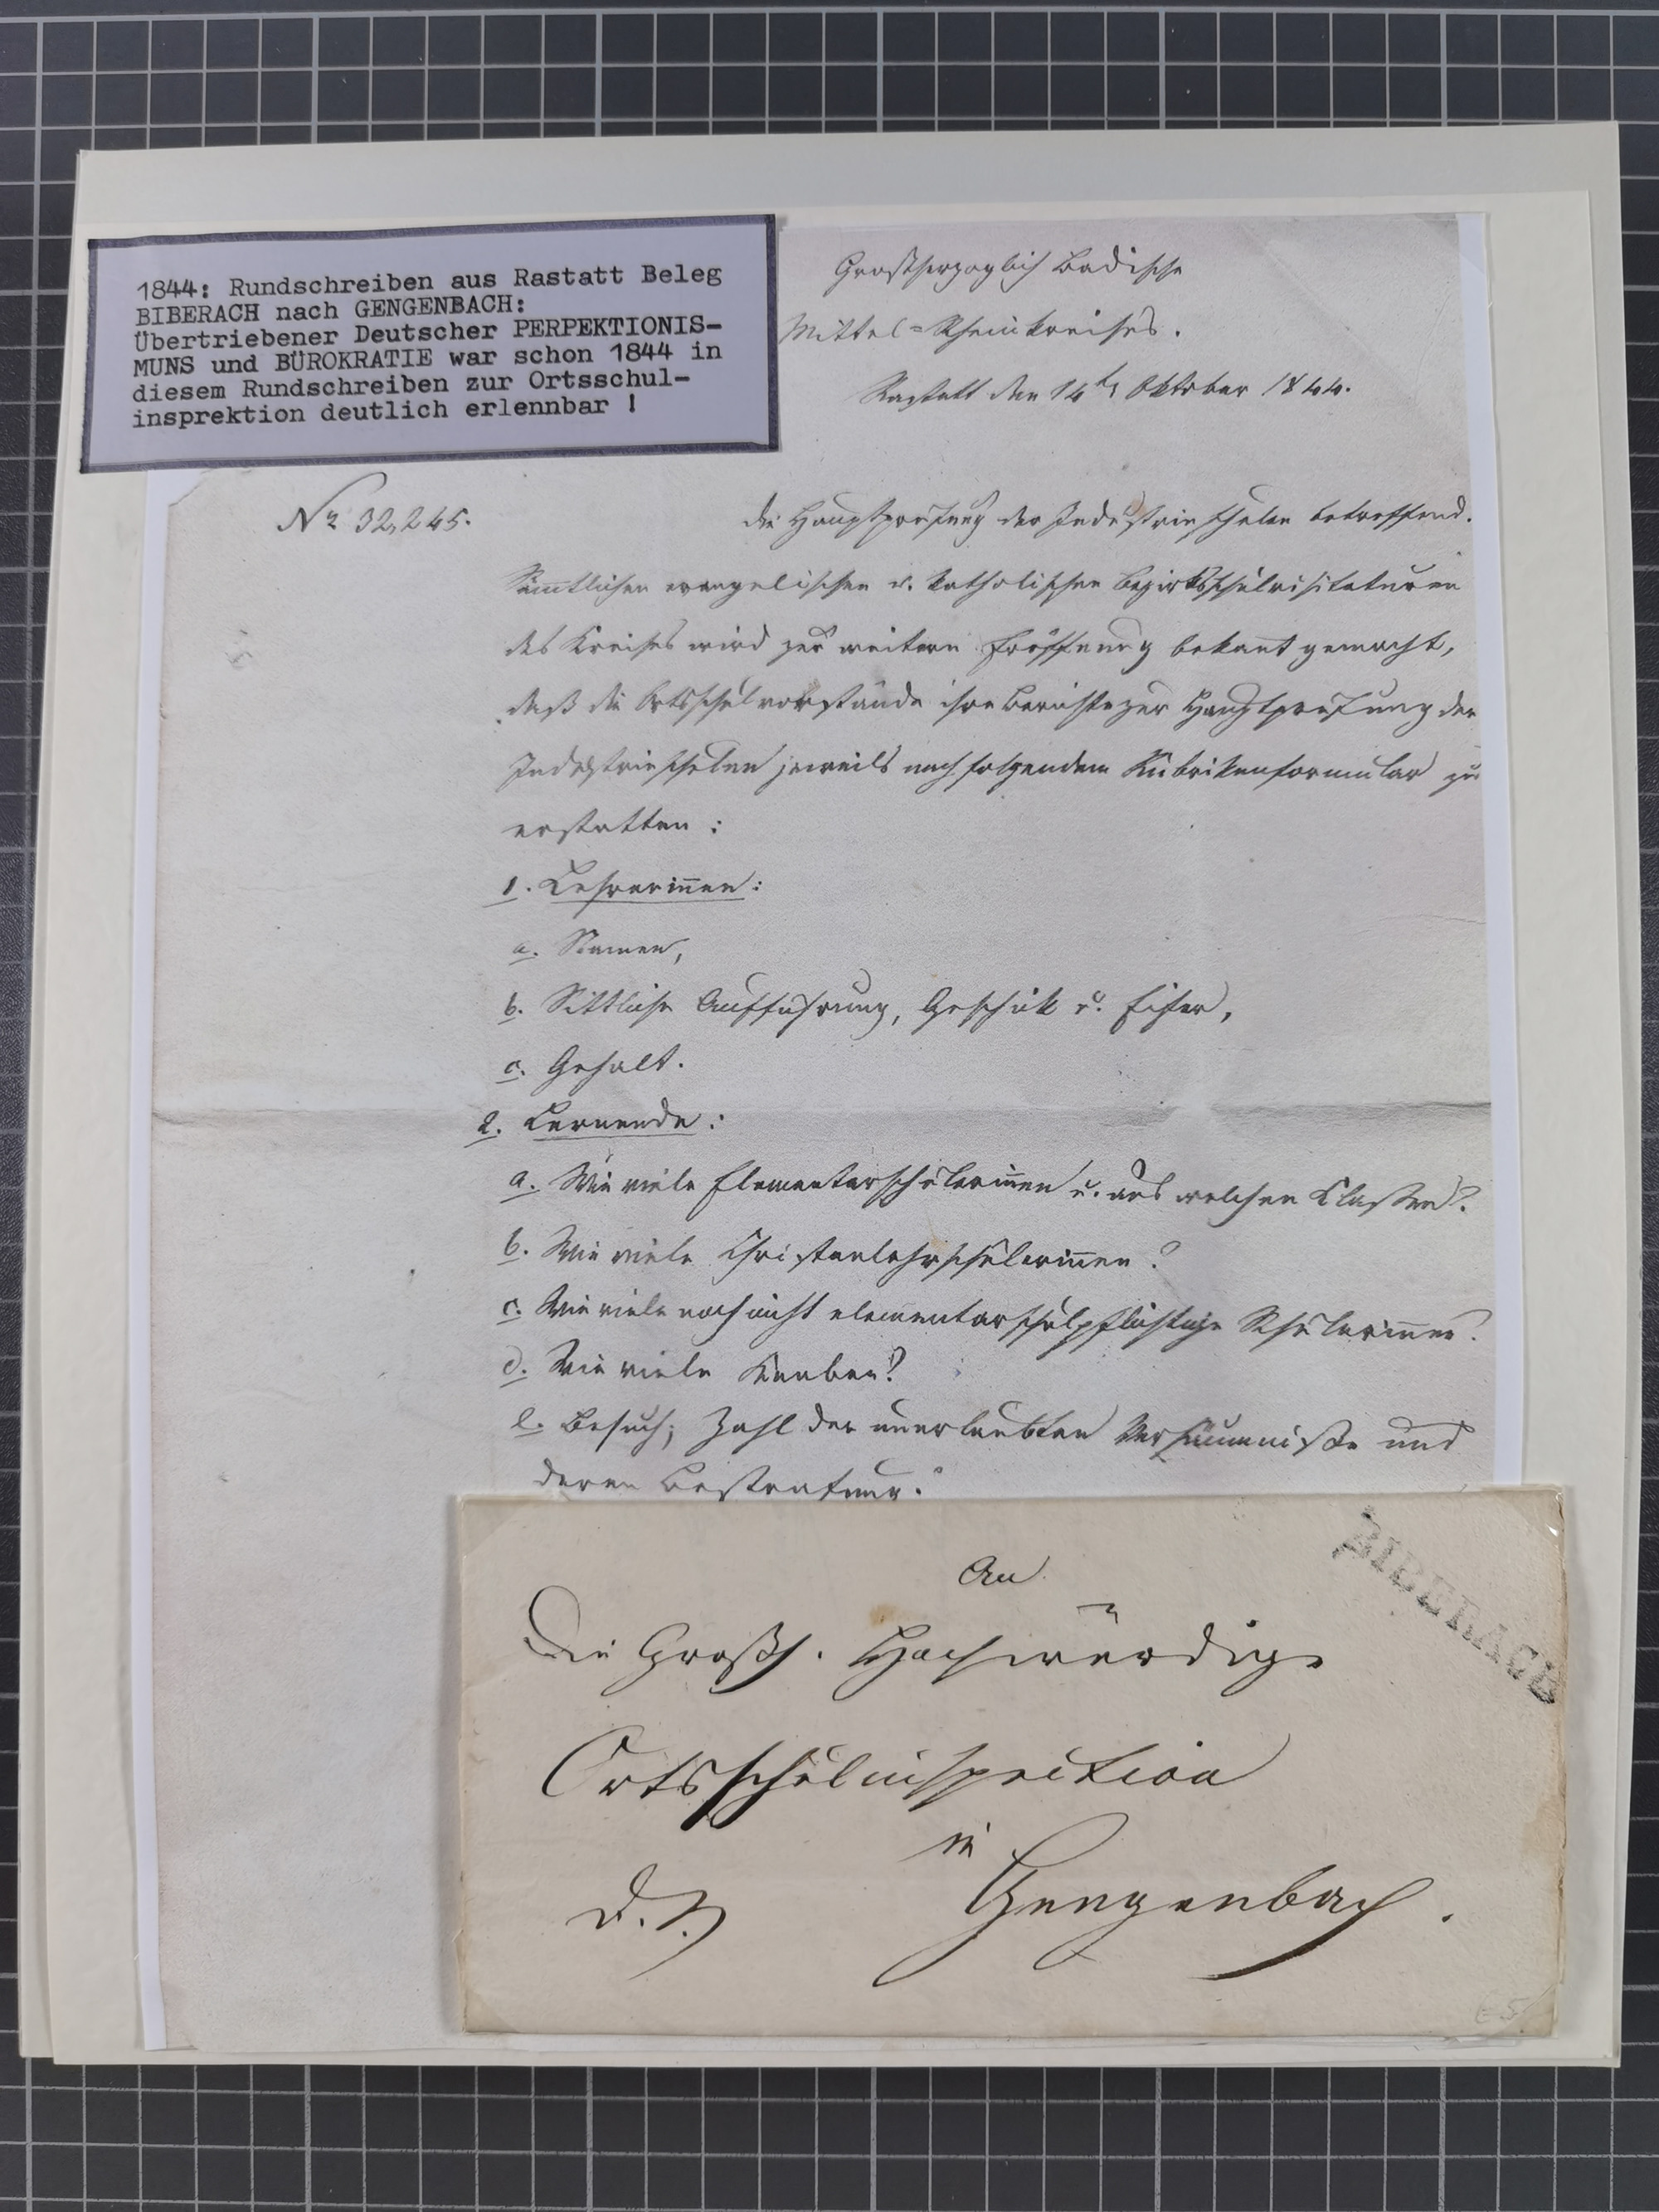 1844: Rundschreiben aus Rastatt Beleg
BIBERACH nach GENGENBACH:
Übertriebener Deutscher PERPEKTIONIS-
MUNS und BÜROKRATIE war schon 1844 in
diesem Rundschreiben zur Ortsschul-
insprektion deutlich erlennbar !
Großherzoglich Badische
Mittel=Rheinkreises.
Rastatt den 14t Oktober 1844.
Nr 32,245.
die Hauptprüfung der Industrieschulen betreffend.
Sämtlichen evangelischen u. katholischen Bezirksschulvisitaturen
des Kreises wird zur weitern Eröffnung bekannt gemacht,
daß die Ortsschulvorstände ihre Berichte zur Hauptprüfung der
Industrieschulen jeweils nach folgendem Rubrikenformular zu
erstatten :
1. Lehrerinnen:
a. Namen,
b. Sittliche Aufführung, Geschik u. Eifer,
c. Gehalt.
2. Lernende:
a. Wie viele Elementarschülerinnen u. aus welchen Klaßen?
b. Wie viele Christenlehrschülerinnen?
c. Wie viele noch nicht elementarschulpflichtige Schülerinnen?
d. Wie viele Knaben?
e. Besuch; Zahl der unerlaubten Versäumniße und
deren Bestrafung.
BIBERACH
An
Die Großh. Hochwürdige
Ortsschulinspektion
in
Gengenbach.
D. S.